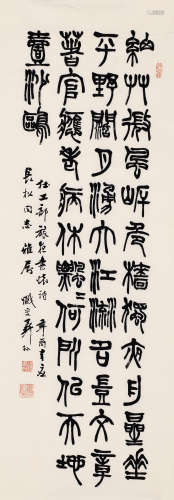 細艸微風岸危檣獨夜舟星垂
平野闊月湧大江流名豈文章
著官應老病休飄飄何所似天地
壹沙鷗
杜工部旅夜書懷詩 辛酉
長松同志雅屬